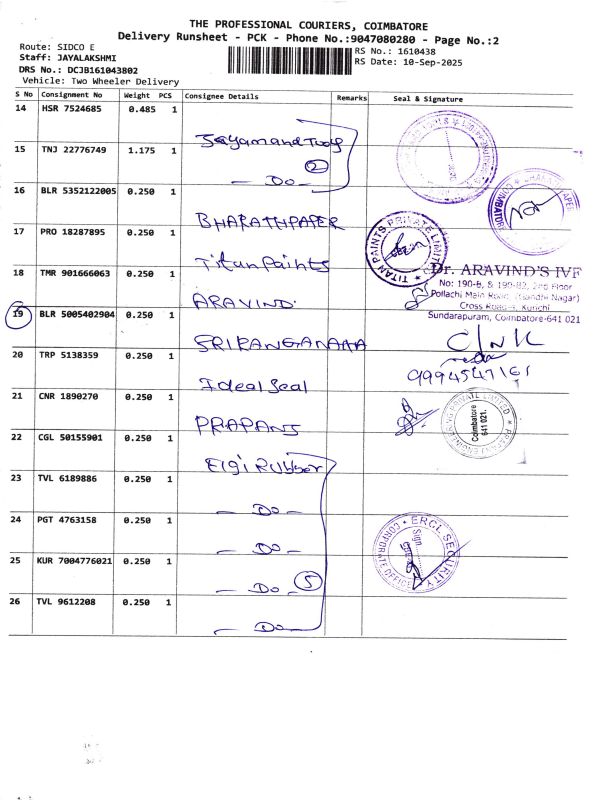 THE PROFESSIONAL COURIERS, COIMBATORE
Delivery Runsheet - PCK - Phone No.:9047080280 - Page No.:2
Route: SIDCO E
Staff: JAYALAKSHMI
DRS No.: DCJB161043802
Vehicle: Two Wheeler Delivery
RS No.: 1610438
RS Date: 10-Sep-2025
S No Consignment No Weight PCS Consignee Details Remarks Seal & Signature
14 HSR 7524685 0.485 1
15 TNJ 22776749 1.175 1 — Do — 2
16 BLR 5352122005 0.250 1 BHARATHPAPER
17 PRO 18287895 0.250 1 Titan Paints
TITAN PAINTS PRIVATE LIMITED
18 TMR 901666063 0.250 1 ARAVIND
Dr. ARAVIND'S IVF
No: 190-B, & 190-B2, 2nd Floor
Pollachi Main Road, (Gandhi Nagar)
Cross Road-3, Kurichi
Sundarapuram, Coimbatore-641 021
19 BLR 5005402904 0.250 1
20 TRP 5138359 0.250 1 Ideal Seal
9994547161
21 CNR 1890270 0.250 1 PRAPANS
Coimbatore
641 021.
22 CGL 50155901 0.250 1 Elgi Rubber
23 TVL 6189886 0.250 1 — Do —
24 PGT 4763158 0.250 1 — Do —
ERCL SECURITY
CORPORATE OFFICE
Sign
25 KUR 7004776021 0.250 1 — Do — 5
26 TVL 9612208 0.250 1 — Do —